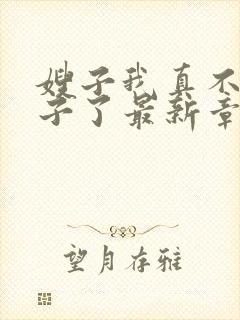 嫂子我真不
子了最新章
望月存雅